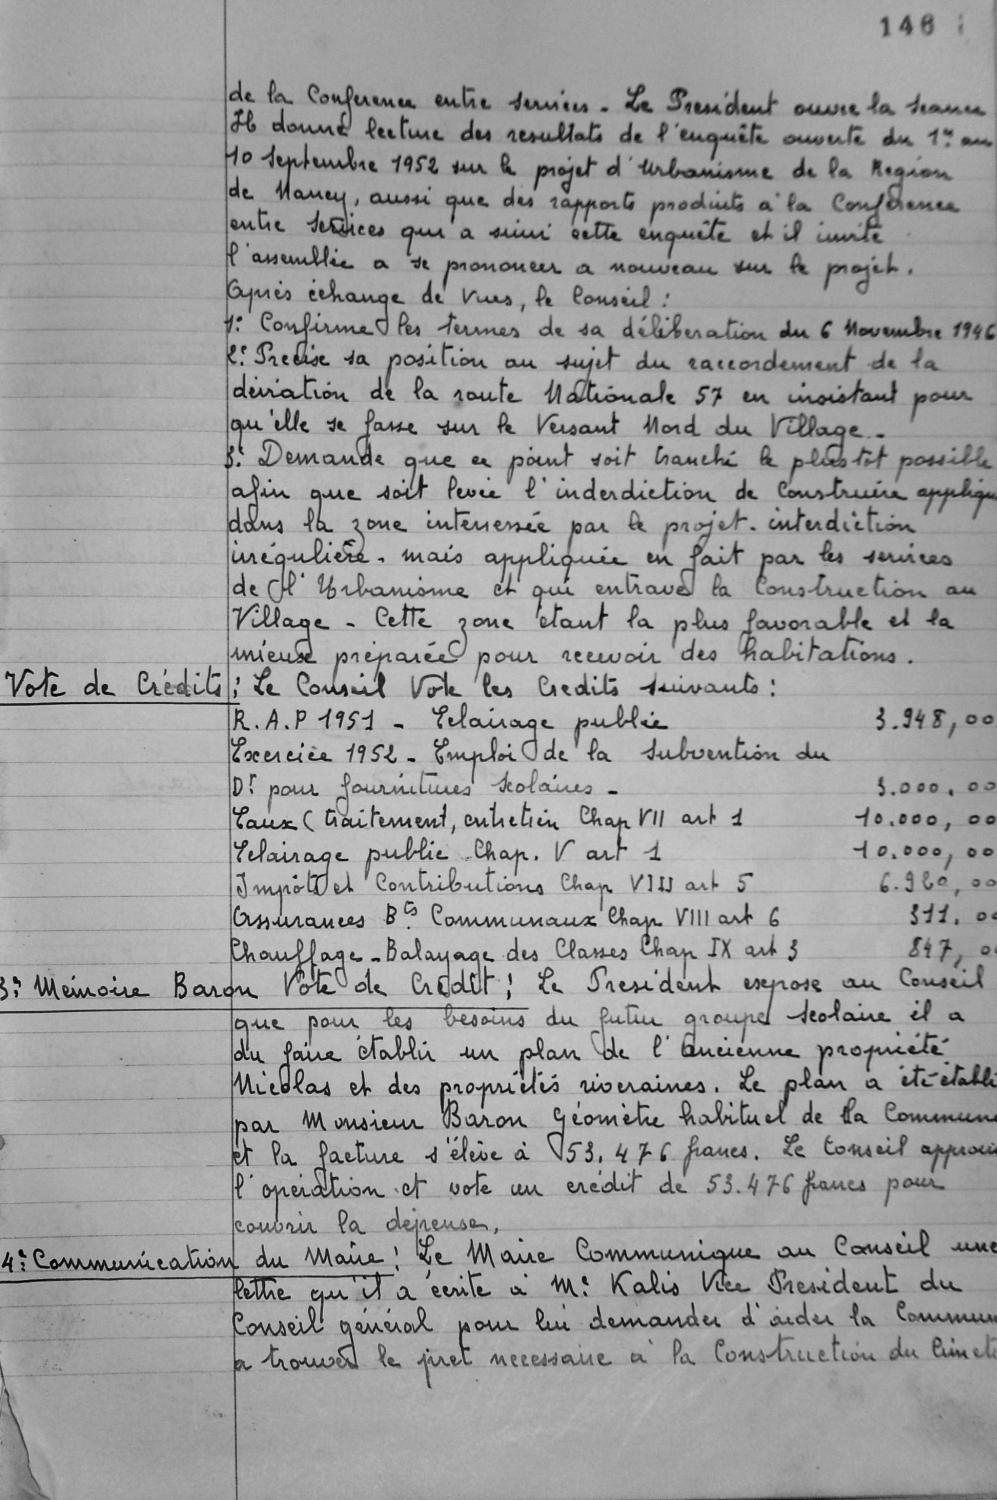 146
de la Conference entre services - Le President ouvre la seance
Il donne lecture des resultats de l'enquête ouverte du 1er au
10 Septembre 1952 sur le projet d'Urbanisme de la Region
de Nancy, aussi que des rapports produits a la Conference
entre Services qui a suivi cette enquête et il invite
l'assemblée a se prononcer a nouveau sur le projet.
Après échange de Vues, le Conseil :
1º Confirme les termes de sa déliberation du 6 Novembre 1946
2º Precise sa position au sujet du raccordement de la
déviation de la route Nationale 57 en insistant pour
qu'elle se fasse sur le Versant Nord du Village -
3º Demande que ce point soit tranché le plus tôt possible
afin que soit levée l'inderdiction de Construire appliqu
dans la zone interressée par le projet - interdiction
irégulière - mais appliquée en fait par les services
de l'Urbanisme et qui entrave la Construction au
Village - Cette zone etant la plus favorable et la
mieux préparée pour recevoir des habitations.
Vote de Crédits : Le Conseil Vote les Credits suivants :
R.A.P 1951 - Eclairage public 3.948,00
Exercice 1952 - Emploi de la subvention du
Dt pour fournitures scolaires - 3.000,00
Eaux (traitement, entretien Chap VII art 1 10.000,00
Eclairage public Chap. V art 1 10.000,00
Impôts et Contributions Chap VIII art 5 6.920,00
Assurances Bts Communaux Chap VIII art 6 311,00
Chauffage - Balayage des Classes Chap IX art 3 847,00
3º Mémoire Baron Vote de Crédit : Le President expose au Conseil
que pour les besoins du futur groupe scolaire il a
du faire établir un plan de l'ancienne propriété
Nicolas et des propriétés riveraines. Le plan a été établi
par Monsieur Baron Géomètre habituel de la Commune
et la facture s'élève à 53.476 francs. Le Conseil approuve
l'opération et vote un crédit de 53.476 francs pour
couvrir la dépense.
4º Communication du Maire : Le Maire Communique au Conseil une
lettre qu'il a écrite à Mr Kalis Vice President du
Conseil général pour lui demander d'aider la Commun
a trouver le pret necessaire à la Construction du Cimeti